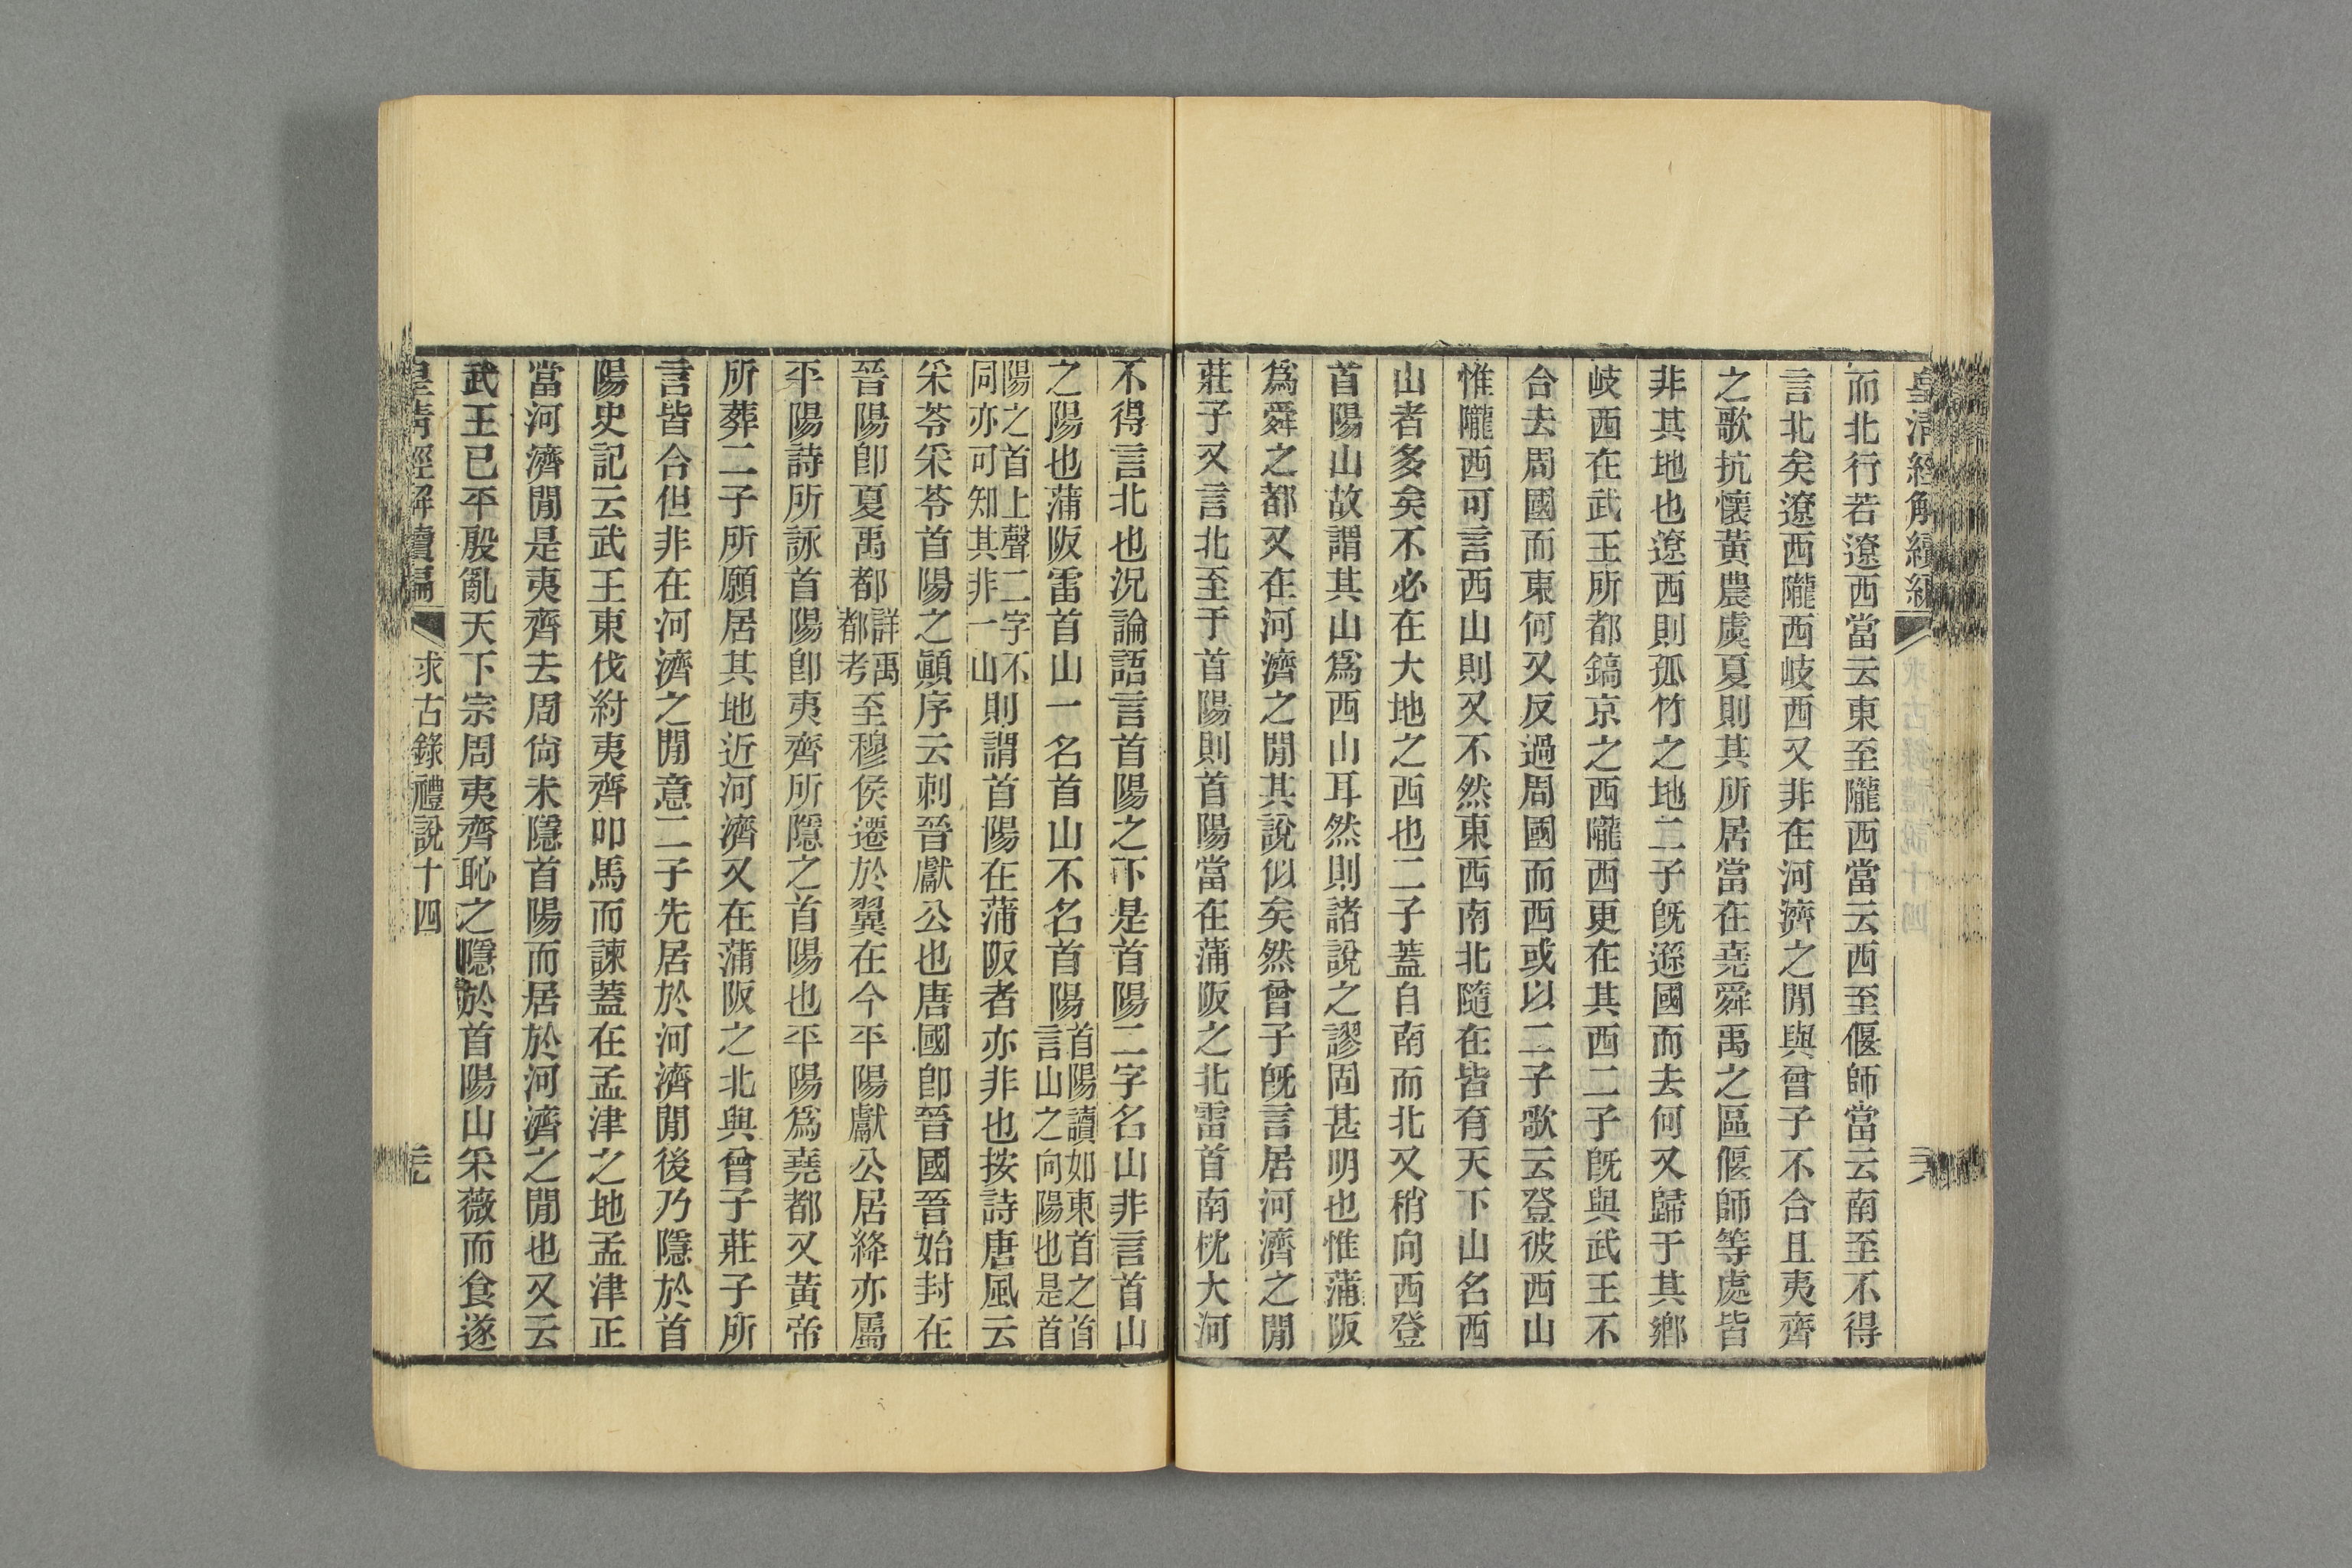 皇清經解續編
而北行若遼西當云東至隴西當云西至偃師當云南至不得
言北矣遼西隴西岐西又非在河濟之閒與曾子不合且夷齊
之歌抗懷黃農虞夏則其所居當在堯舜禹之區偃師等處皆
非其地也遼西則孤竹之地二子旣遜國而去何又歸于其鄕
岐西在武王所都鎬京之西隴西更在其西二子旣與武王不
合去周國而東何又反過周國而西或以二子歌云登彼西山
惟隴西可言西山則又不然東西南北隨在皆有天下山名西
山者多矣不必在大地之西也二子蓋自南而北又稍向西登
首陽山故謂其山爲西山耳然則諸說之謬固甚明也惟蒲阪
爲舜之都又在河濟之閒其說似矣然曾子旣言居河濟之閒
莊子又言北至于首陽則首陽當在蒲阪之北雷首南枕大河
不得言北也況論語言首陽之下是首陽二字名山非言首山
之陽也蒲阪雷首山一名首山不名首陽首陽讀如東首之首言山之向陽也是首
陽之首上聲二字不同亦可知其非一山則謂首陽在蒲阪者亦非也按詩唐風云
采苓采苓首陽之顚序云刺晉獻公也唐國卽晉國晉始封在
晉陽卽夏禹都詳禹都考至穆侯遷於翼在今平陽獻公居絳亦屬
平陽詩所詠首陽卽夷齊所隱之首陽也平陽爲堯都又黃帝
所葬二子所願居其地近河濟又在蒲阪之北與曾子莊子所
言皆合但非在河濟之閒意二子先居於河濟閒後乃隱於首
陽史記云武王東伐紂夷齊叩馬而諫蓋在孟津之地孟津正
當河濟閒是夷齊去周尙未隱首陽而居於河濟之閒也又云
武王已平殷亂天下宗周夷齊恥之隱於首陽山采薇而食遂
皇清經解續編
求古錄禮說十四